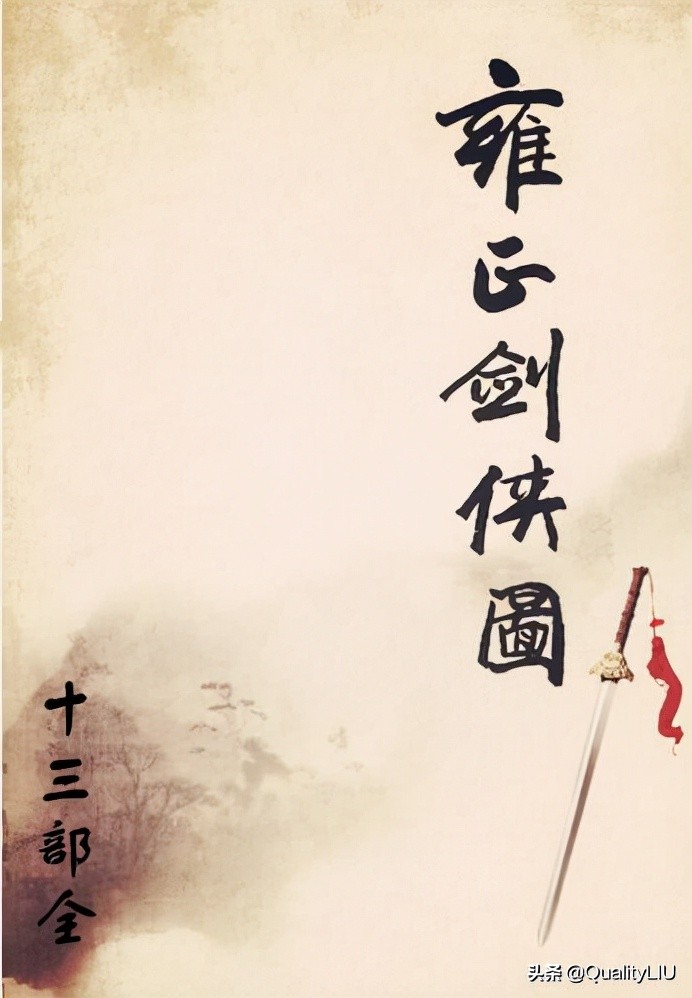 雍正剑侠圖
十三部全
头条 @QualityLIU